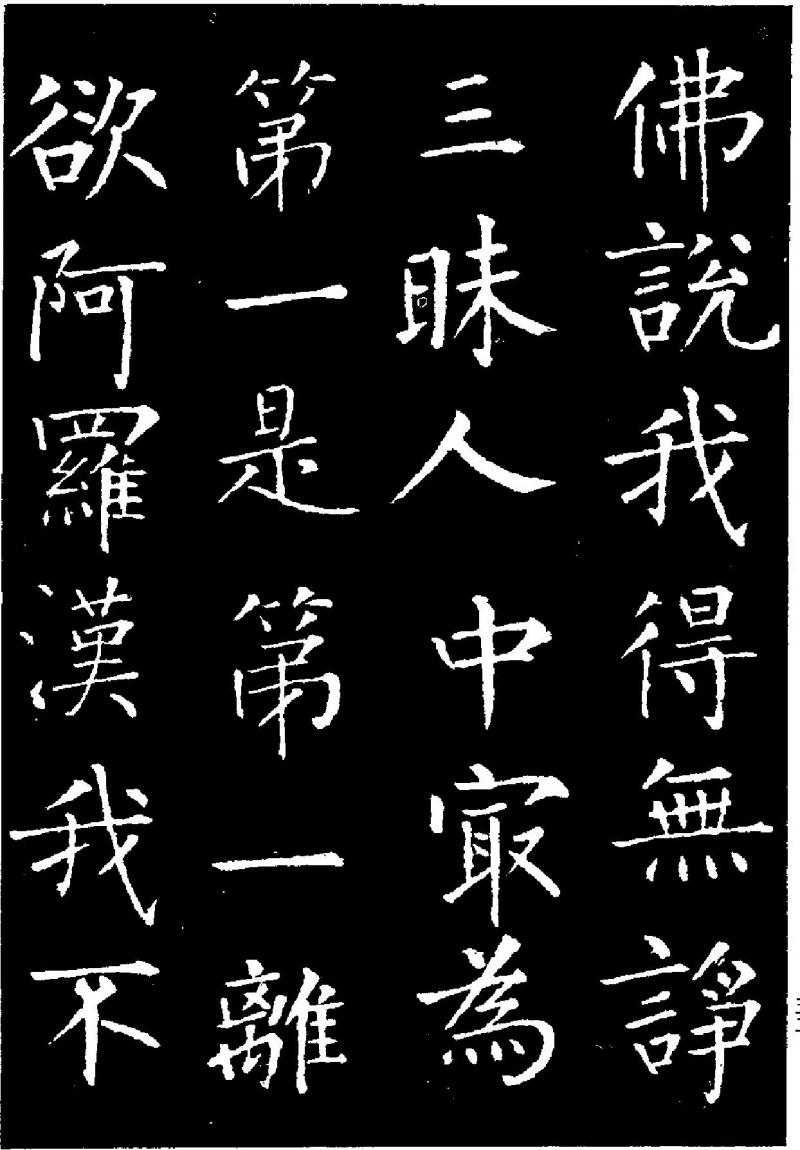 佛說我得無諍
三昧人中㝡為
第一是第一離
欲阿羅漢我不